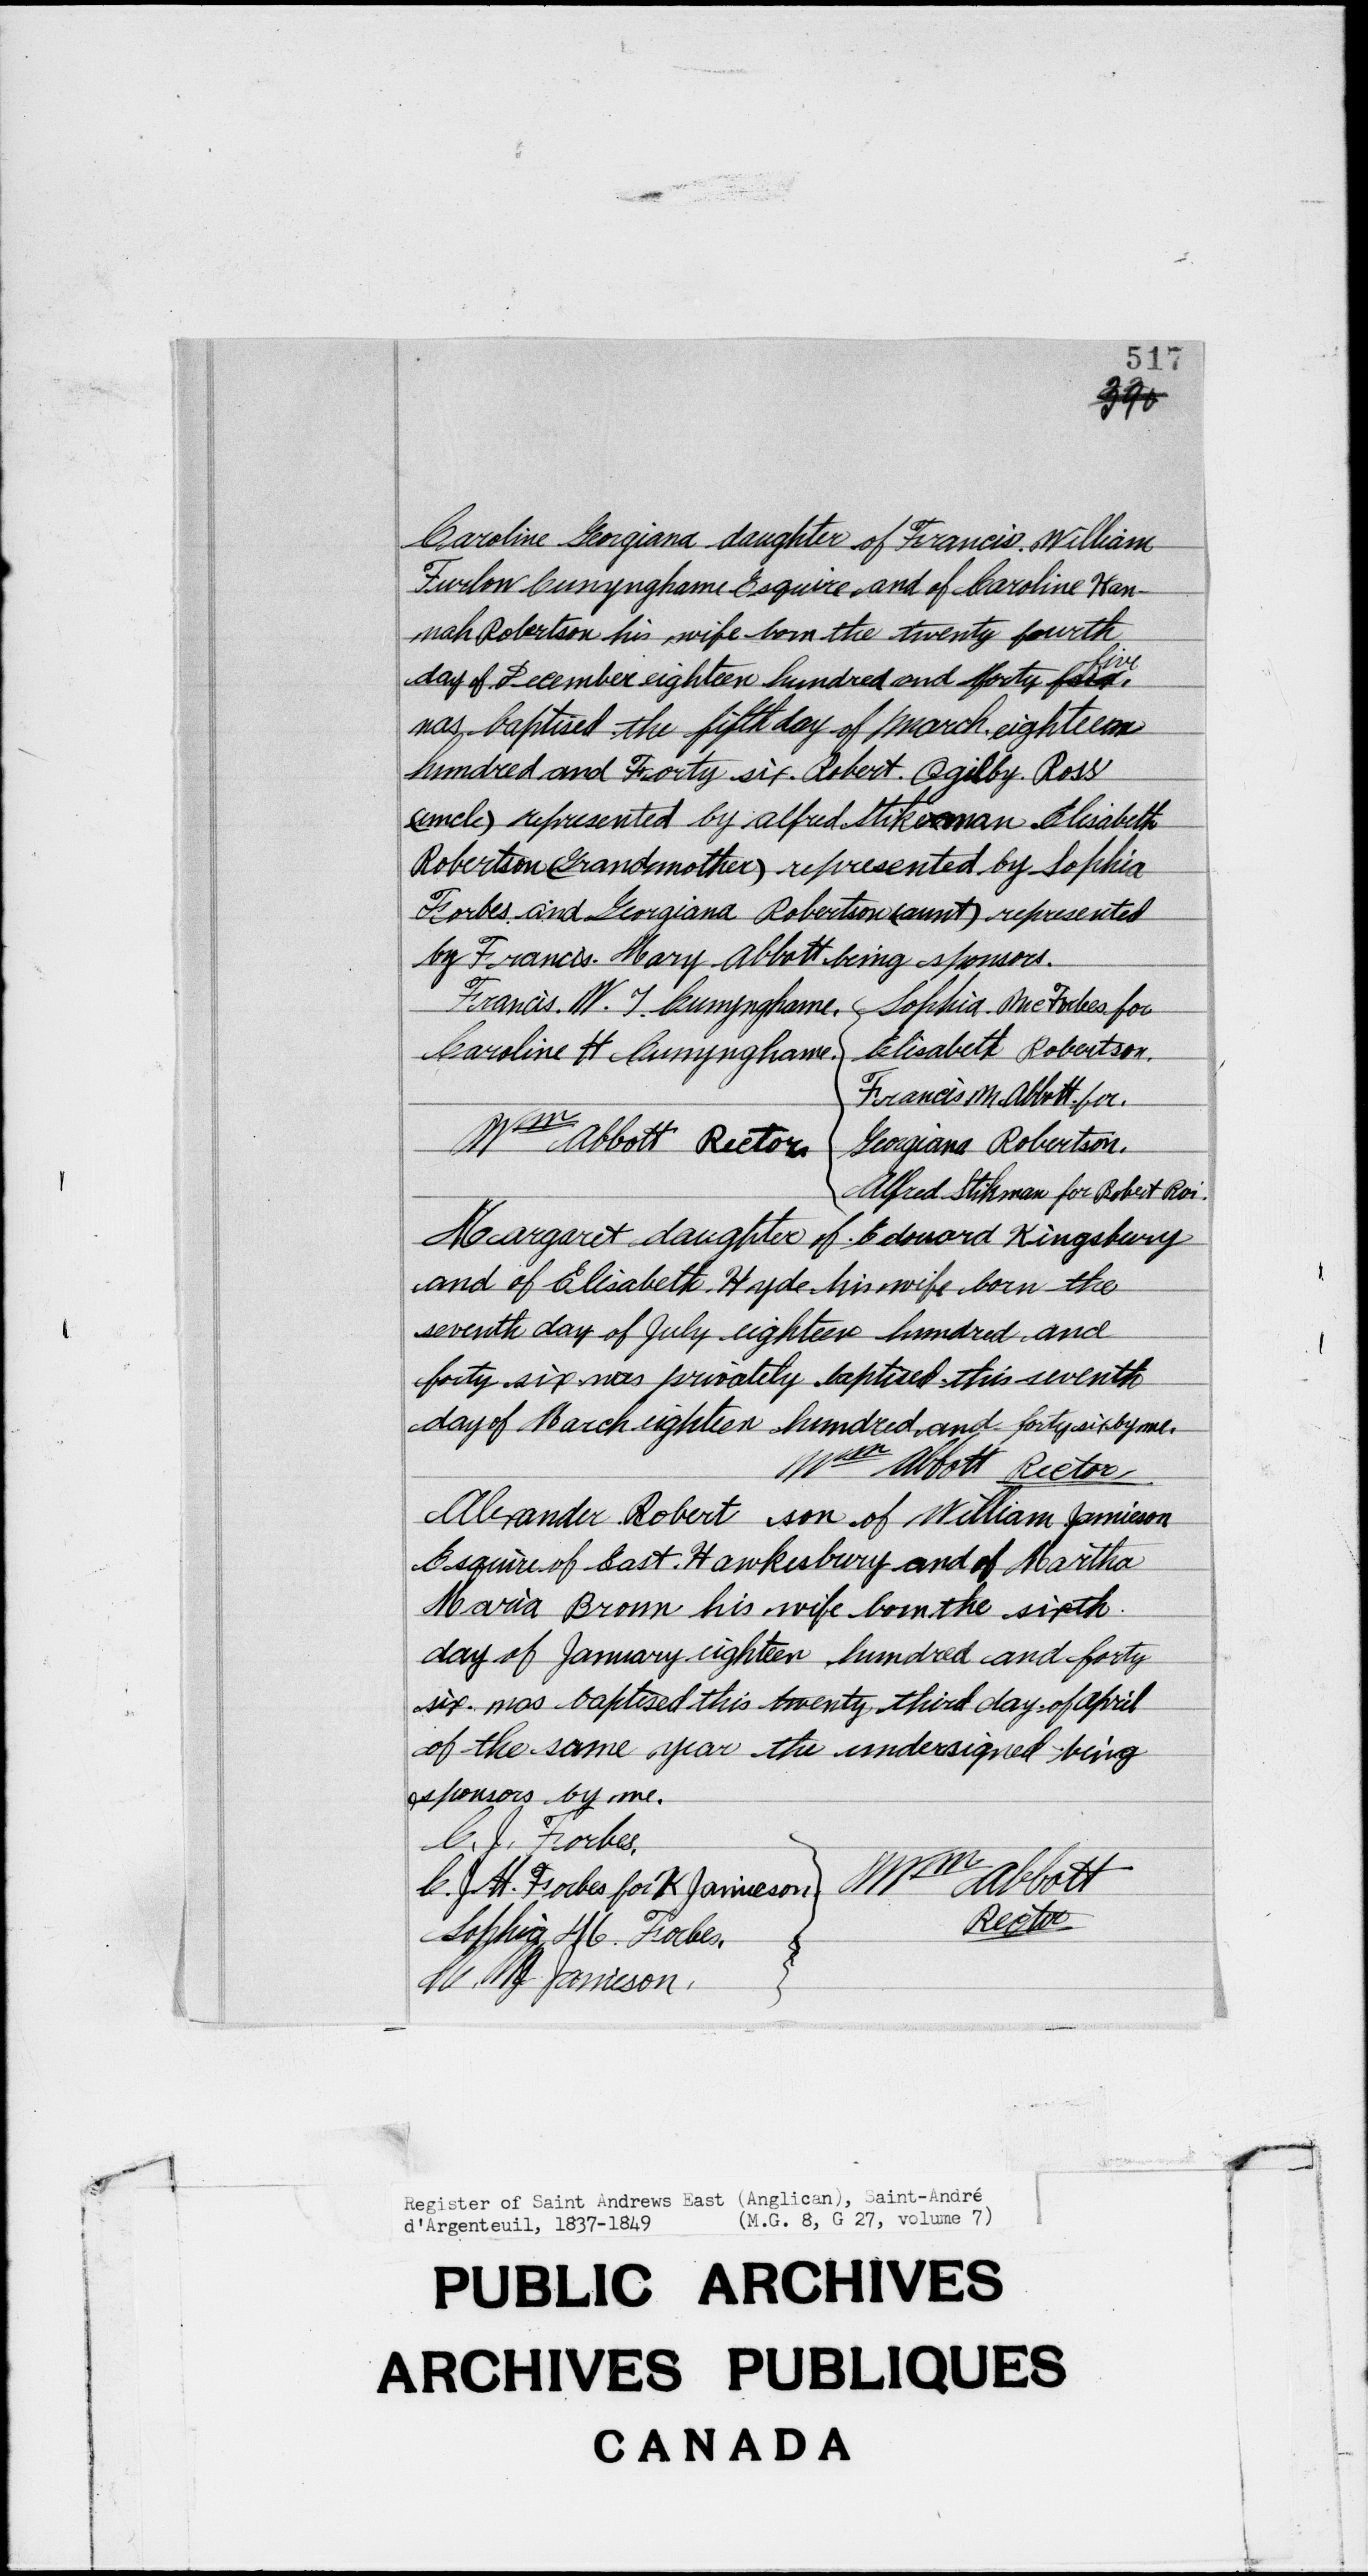 517
390
Caroline Georgiana daughter of Francis. William
Furlow Cunynghame Esquire and of Caroline Han-
nah Robertson his wife born the twenty fourth
day of December eighteen hundred and forty five
was baptised the fifth day of March eighteen
hundred and Forty six. Robert. Ogilby. Ross
(uncle) represented by Alfred Stikeman Elisabeth
Robertson (Grandmother) represented by Sophia
Forbes and Georgiana Robertson (aunt) represented
by Francis. Mary Abbott being sponsors.
Francis. W. F. Cunynghame. Sophia McForbes for
Caroline H Cunynghame. Elisabeth Robertson.
Francis M. Abbott for.
Wm Abbott Rector Georgiana Robertson.
Alfred Stikman for Robert Roi.
Margaret daughter of Edouard Kingsbury
and of Elisabeth Hyde his wife born the
seventh day of July eighteen hundred and
forty six was privately baptised this seventh
day of March eighteen hundred and forty six by me.
Wm Abbott Rector
Alexander Robert son of William Jamieson
Esquire of East. Hawkesbury and of Martha
Maria Bronn his wife born the sixth
day of January eighteen hundred and forty
six. was baptised this twenty third day of April
of the same year the undersigned being
sponsors by me.
C. J. Forbes.
C. J. H. Forbes for K Jamieson Wm Abbott
Sophia M. Forbes. Rector
Jamieson.
Register of Saint Andrews East (Anglican), Saint-André
d'Argenteuil, 1837-1849 (M.G. 8, G 27, volume 7)
PUBLIC ARCHIVES
ARCHIVES PUBLIQUES
CANADA